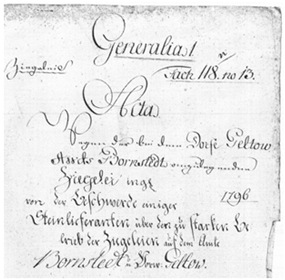 Generalia 1
Ziegelei
Fach 118. no 13.
Acta
Wegen der bei dem Dorfe Geltow
Amts Bornstedt anzulegenden
Ziegelei ingl.
1796
von der Beschwerde einiger
Steinlieferanten über den zu starken Be
trieb der Ziegeleien auf dem Amte
Bornstedt Geltow.